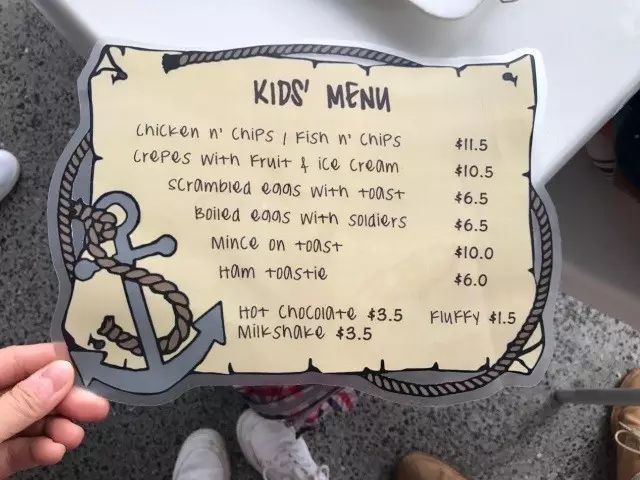 KIDS' MENU
Chicken n' Chips / Fish n' Chips $11.5
Crepes with Fruit & Ice Cream $10.5
Scrambled eggs with toast $6.5
Boiled eggs with soldiers $6.5
Mince on toast $10.0
Ham toastie $6.0
Hot Chocolate $3.5 Fluffy $1.5
Milkshake $3.5